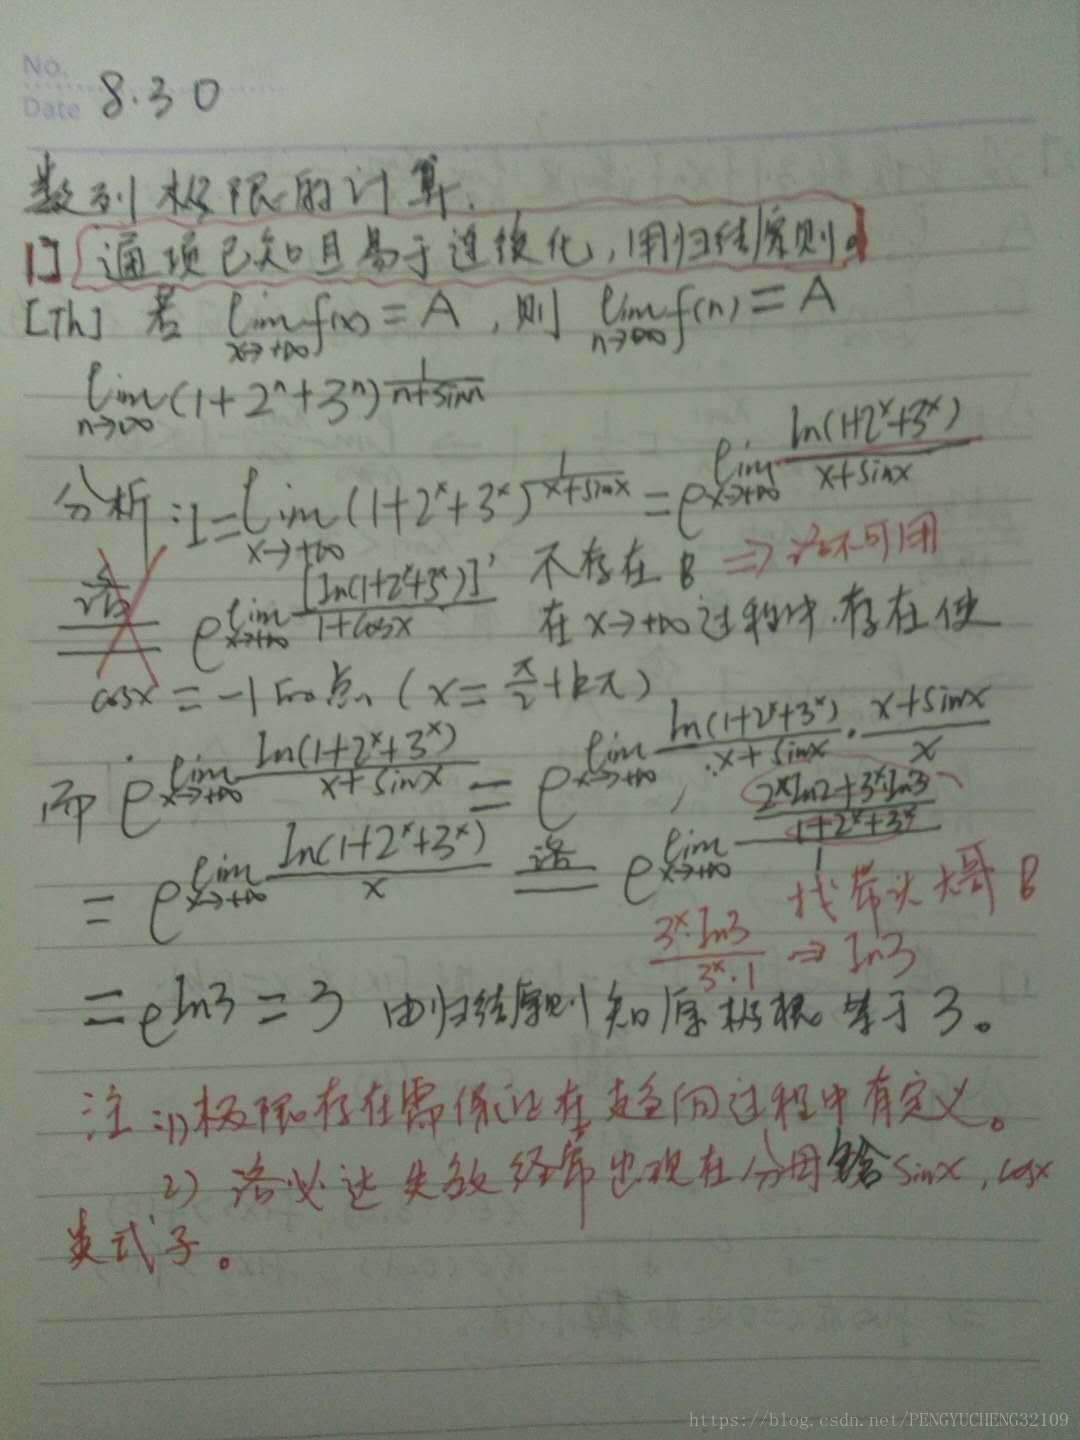 No.
Date 8.30
数列极限的计算.
1] 通项已知且易于连续化,用归结原则。
[Th] 若 lim_{x→+∞} f(x) = A , 则 lim_{n→∞} f(n) = A
lim_{n→∞} (1+2^n+3^n)^{1/(n+sinn)}
分析: I = lim_{x→+∞} (1+2^x+3^x)^{1/(x+sinx)} = e^{lim_{x→+∞} ln(1+2^x+3^x)/(x+sinx)}
e^{lim_{x→+∞} [ln(1+2^x+3^x)]'/(1+cosx)} 不存在 ⇒ 洛不可用
在 x→+∞ 过程中.存在使
cosx = -1 的点 (x = π/2+kπ)
而 e^{lim_{x→+∞} ln(1+2^x+3^x)/(x+sinx)} = e^{lim_{x→+∞} ln(1+2^x+3^x)/(x+sinx) · (x+sinx)/x}
= e^{lim_{x→+∞} ln(1+2^x+3^x)/x} 洛= e^{lim_{x→+∞} ((2^x ln2+3^x·ln3)/(1+2^x+3^x))/1}
找带头大哥
3^x·ln3/(3^x·1) ⇒ ln3
= e^{ln3} = 3 由归结原则知原极限等于3。
注:1)极限存在需保证在趋向过程中有定义。
2) 洛必达失效经常出现在分母含sinx,cosx
类式子。
https://blog.csdn.net/PENGYUCHENG32109